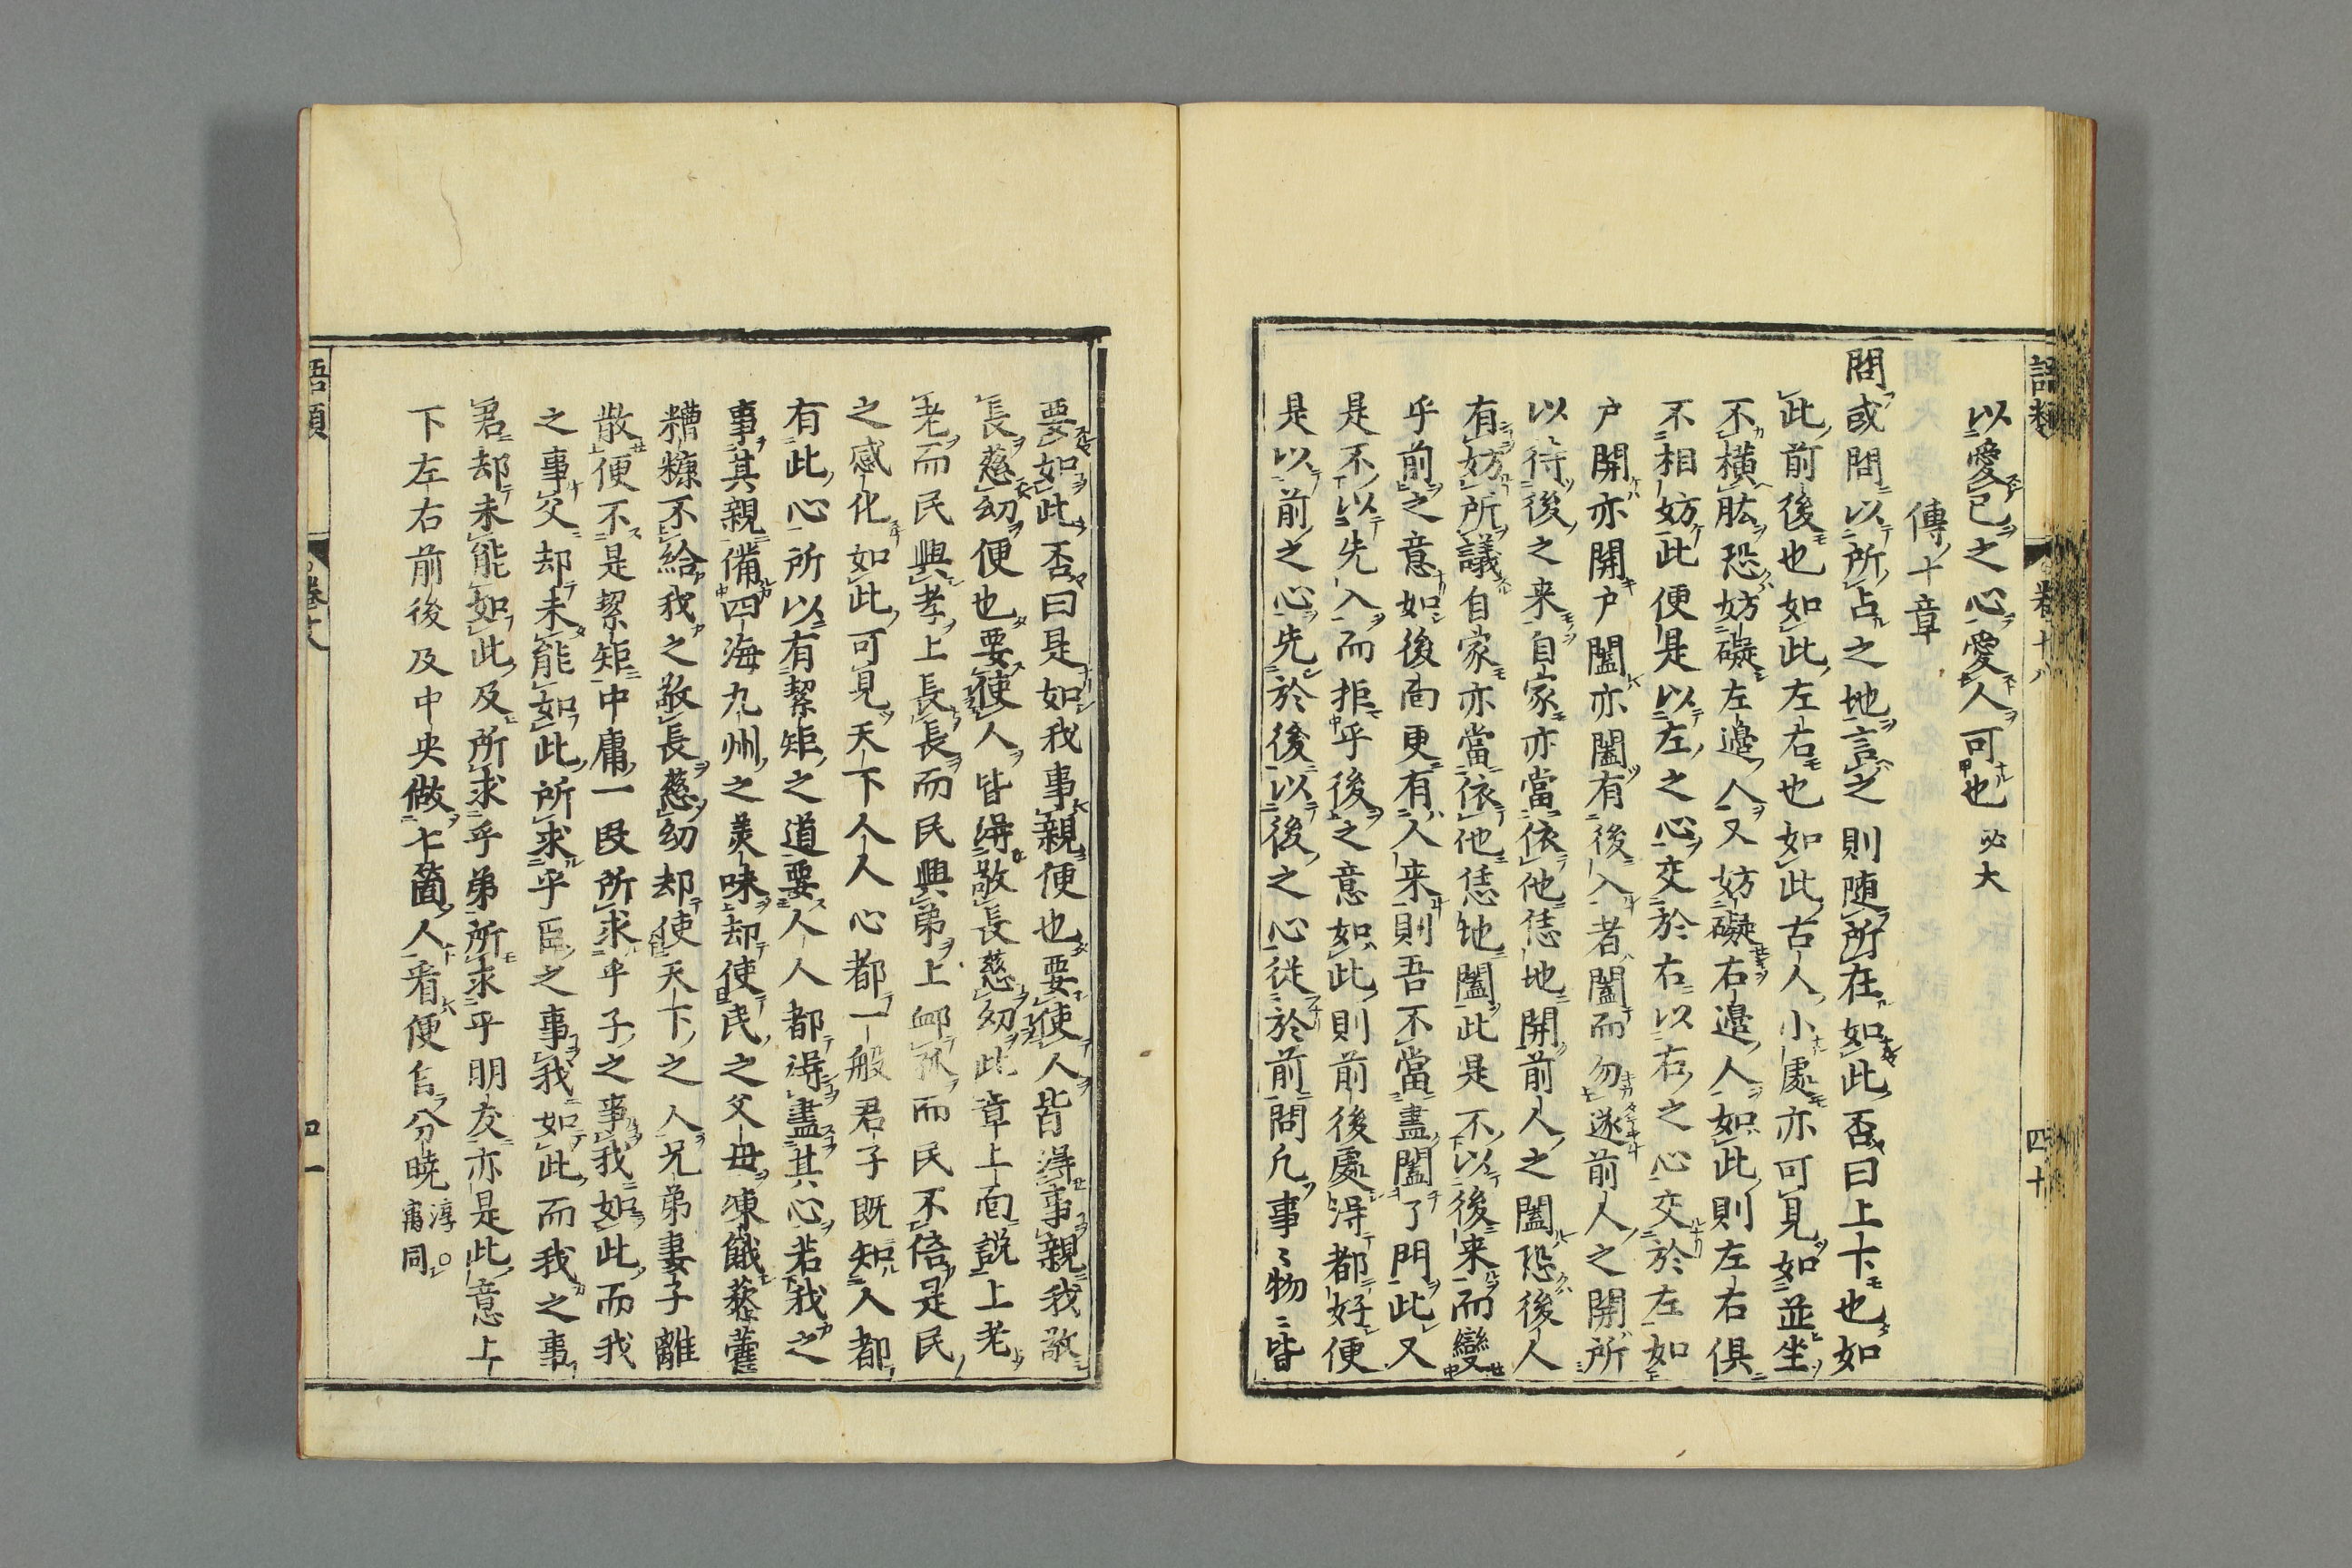 語類 卷十八 四十
以愛己之心愛人可也必大
傳十章
問或問以所占之地言之則随所在如此否曰上下也如
此前後也如此左右也如此古人小處亦可見如並坐
不横肱恐妨礙左邊人又妨礙右邊人如此則左右俱
不相妨此便是以左之心交於右以右之心交於左如
户開亦開户闔亦闔有後入者闔而勿遂前人之開所
以待後之来自家亦當依他恁地開前人之闔恐後人
有妨所議自家亦當依他恁地闔此是不以後来而變
乎前之意如後面更有人来則吾不當盡闔了門此又
是不以先入而拒乎後之意如此則前後處得都好便
是以前之心先於後以後之心従於前問凡事〻物〻皆
要如此否曰是如我事親便也要使人皆得事親我敬
長慈幼便也要使人皆得敬長慈幼此章上面説上老
老而民興孝上長長而民興弟上䘏孤而民不倍是民
之感化如此可見天下人人心都一般君子既知人都
有此心所以有絜矩之道要人人都得盡其心若我之
事其親備四海九州之美味却使民之父母凍餓藜藿
糟糠不給我之敬長慈幼却使天下之人兄弟妻子離
散便不是絜矩中庸一段所求乎子之事我如此而我
之事父却未能如此所求乎臣之事我如此而我之事
君却未能如此及所求乎弟所求乎朋友亦是此意上
下左右前後及中央做七箇人看便自分暁淳○㝢同
語類 四一